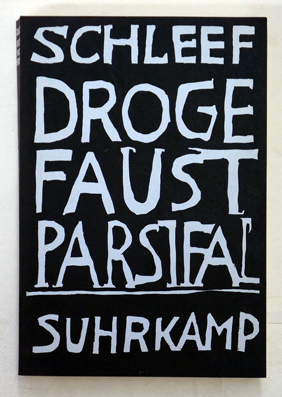 SCHLEEF
DROGE
FAUST
PARSIFAL
SUHRKAMP